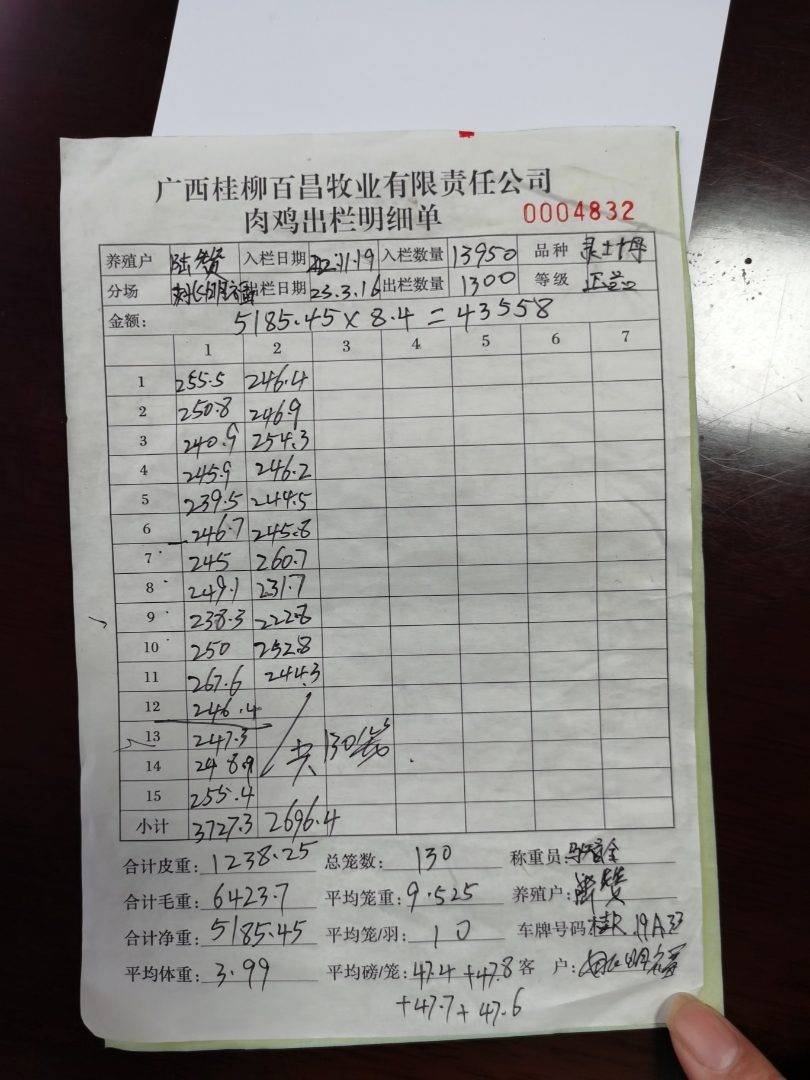 广西桂柳百昌牧业有限责任公司
肉鸡出栏明细单 0004832
养殖户 陆 入栏日期 22.11.19 入栏数量 13950 品种
分场 出栏日期 23.3.16 出栏数量 1300 等级 正品
金额: 5185.45×8.4=43558
1 2 3 4 5 6 7
1 255.5 246.4
2 250.8 246.9
3 240.9 254.3
4 245.9 246.2
5 239.5 244.5
6 246.7 245.8
7 245 260.7
8 249.1 231.7
9 238.3 222.8
10 250 252.8
11 267.6 244.3
12 246.4
13 247.3 共130笼
14 248.9
15 255.4
小计 3727.3 2696.4
合计皮重: 1238.25 总笼数: 130 称重员:
合计毛重: 6423.7 平均笼重: 9.525 养殖户:
合计净重: 5185.45 平均笼/羽: 10 车牌号码
平均体重: 3.99 平均磅/笼: 47.4+47.8 客 户:
+47.7+47.6